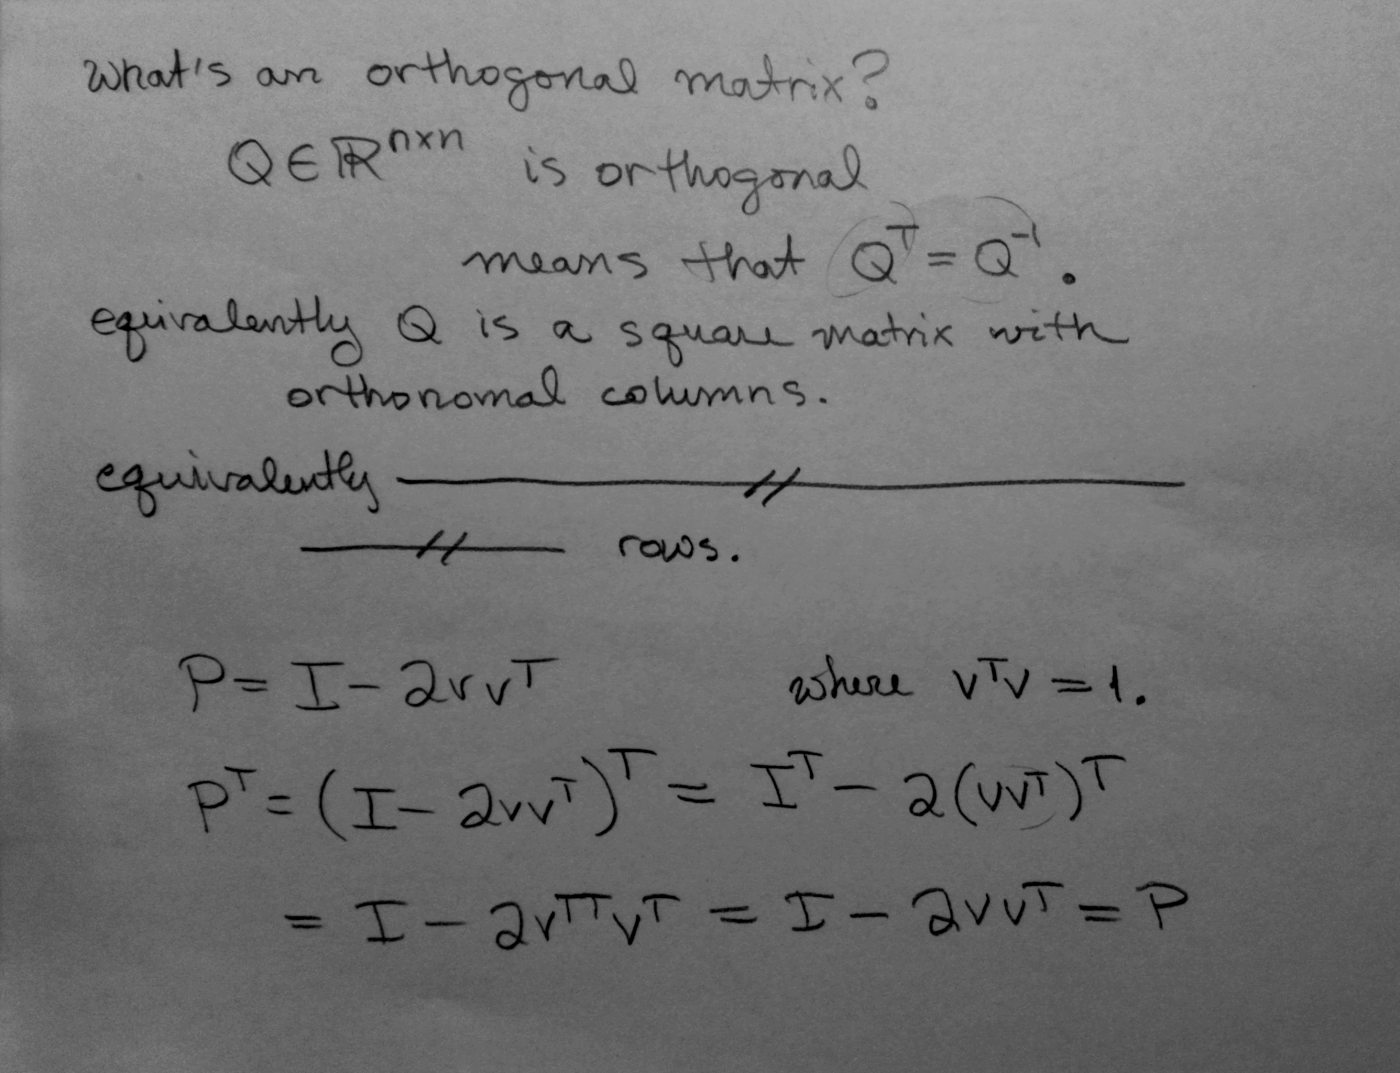 What's an orthogonal matrix?
Q ∈ ℝⁿˣⁿ is orthogonal
means that Qᵀ = Q⁻¹.
equivalently Q is a square matrix with
orthonomal columns.
equivalently —— // ——
—— // —— rows.
P = I − 2vvᵀ where vᵀv = 1.
Pᵀ = (I − 2vvᵀ)ᵀ = Iᵀ − 2(vvᵀ)ᵀ
= I − 2vᵀᵀvᵀ = I − 2vvᵀ = P